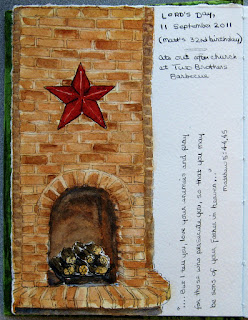 LORD'S DAY,
11 September 2011
(Matt's 32nd birthday)
Ate out after church
at Two Brothers
Barbecue
"....But I tell you, love your enemies and pray
for those who persecute you, so that you may
be sons of your Father in heaven..."
Matthew 5:44,45